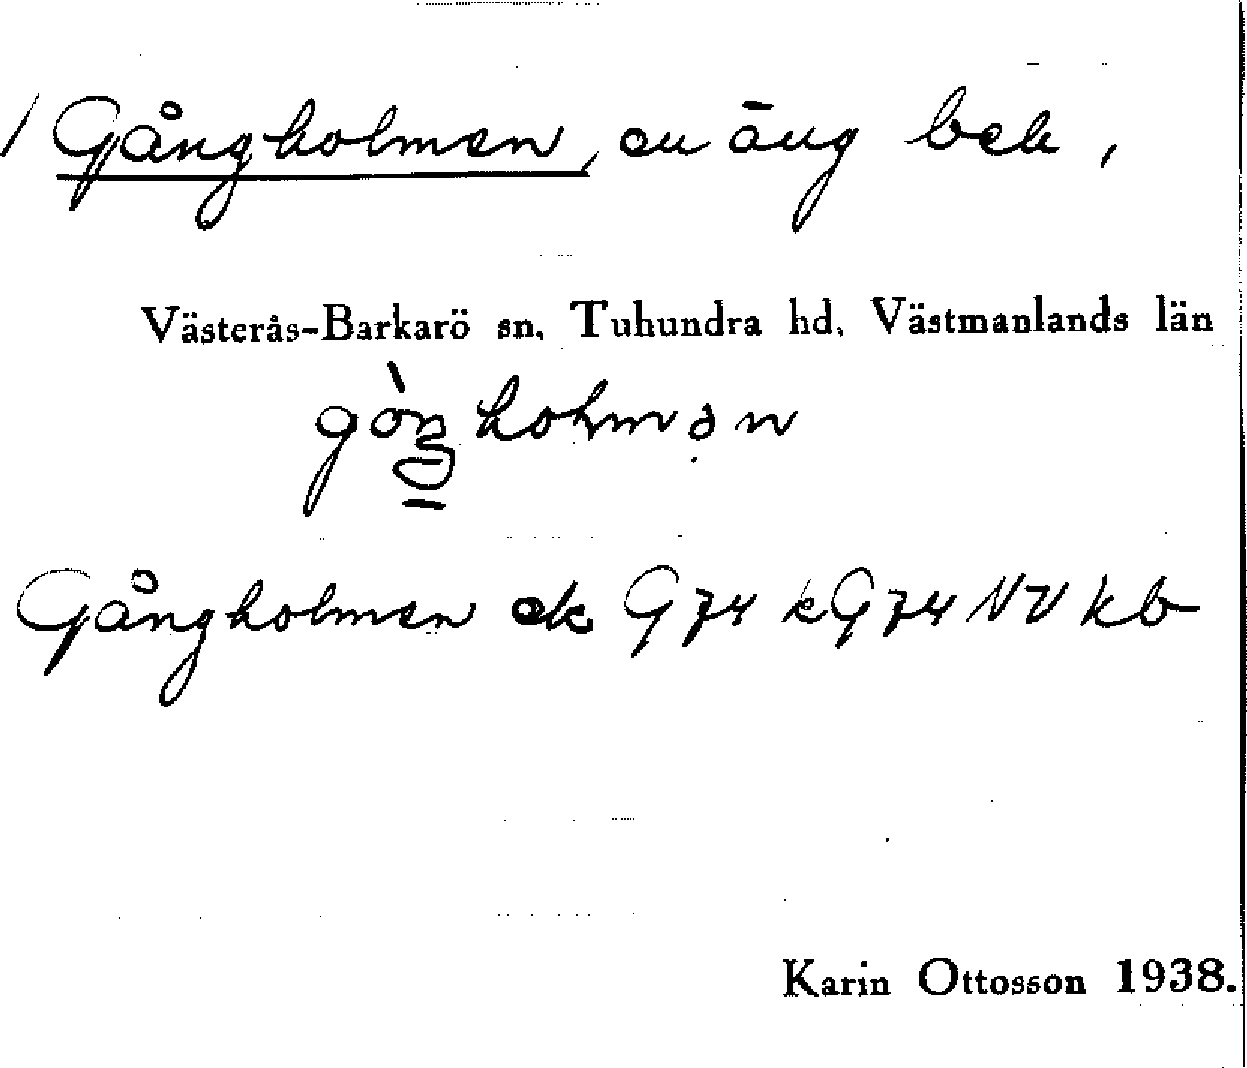 / Gångholmen, en äng beb,
Västerås-Barkarö sn, Tuhundra hd, Västmanlands län
gòŋholmən
Gångholmen ek G74 kG74 NV kb
Karin Ottosson 1938.